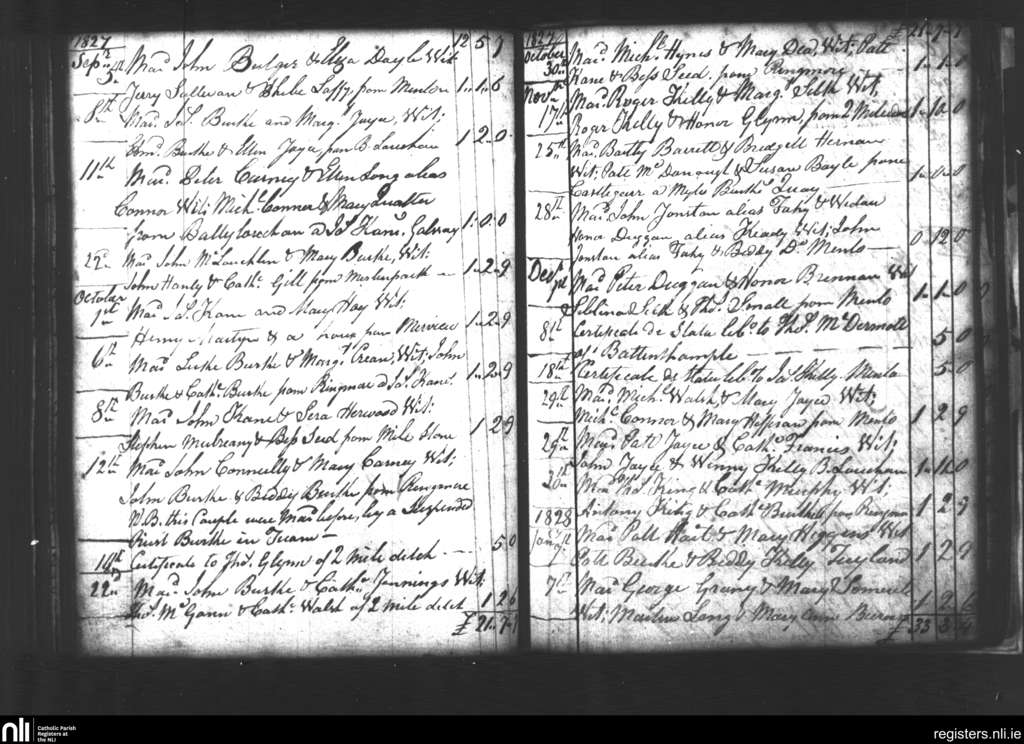 1827
12 5 7
Sepr. 5th Mard. John Bulger & Eliza Doyle Wit
Jerry Sullivan & Phebe Laffy from Menlow 1..1..6
8th Mard. Js. Burke and Margt. Joyce, Wit;
Edmd. Burke & Ellen Joyce from B. Loughan 1 2 0
11th Mard. Peter Carney & Ellen Long alias
Connor Wit; Michl. Connor & Mary Qualter
from Ballyloughan a Js. Kane. Galway 1..0..0
22d Mard. John McLaughlin & Mary Burke, Wit:
John Hanly & Cathe. Gill from Merlinpark 1..2..9
October 1st Mard. Js. Kane and Mary Hay Wit;
Henry Martyn & a from Merview 1..2..9
6th Mard. Luke Burke & Margt. Crean, Wit; John
Burke & Cathe. Burke from Ringmore a Js. Kane. 1..2..9
8th Mard. John Kane & Sera Herwood Wit;
Stephen Mulreany & Bess Seed from Mile Stone 1 2 9
12th Mard. John Connelly & Mary Carney Wit;
John Burke & Biddy Burke from Ringmore
N.B. this Couple were Mard. before, by a Suspended
Priest Burke in Tuam
18th Certificate to Thos. Glynn of 2 Mile ditch 5 0
22nd Mard. John Burke & Cathe. Jennings Wit.
Thos. McGann & Cathe. Walsh of 2 Mile ditch 1 2 6
£ 21..7..1
1827 £ 21..7..1
October 30th Mard. Michl. Hynes & Mary Dea, Wit; Patt
Kane & Bess Seed from Ringmore 1..1..1
Novr. 17th Mard. Roger Kelly & Margt. Silk Wit;
Roger Kelly & Honor Glynn, from 2 Mileditch 1..10..0
25th Mard. Bartly Barrett & Bridgett Hernan
Wit; Patt McDonough & Susan Boyle from
Castlegar a Myles Burkes Quay 1..0..0
28th Mard. John Jonston alias Fahy & Widow
Honor Duggan alias Keady, Wit; John
Jonston alias Fahy & Biddy Do. Menlo 0 12 0
Decr. 1st Mard. Peter Duggan & Honor Brennan Wit
Sibbina Silk & Thos. Small from Menlo 1..1..0
8th Certificate de Statu lib: to Thos. McDermott
of Battenshample 5 0
18th Certificate de Statu lib: to Js. Kelly Menlo 5 0
29th Mard. Michl. Walsh & Mary Joyce Wit;
Michl. Connor & Mary Hefferan from Menlo 1 2 9
29th Mard. Patt Joyce & Cathe. Francis Wit;
John Joyce & Winny Kelly B. Loughan 1..10..0
30th Mard. Thos. King & Cathe. Murphy Wit;
Antony King & Cathe. from Ringmore 1 2 9
1828
Jany. 1st Mard. Patt Hart & Mary Higgins Wit
Patt Burke & Biddy Kelly Terryland 1 2 9
7th Mard. George Grany & Mary Somervil
Wit; Martin Long & Mary Ann 1 2 6
£ 33 8
nli
Catholic Parish
Registers at
the NLI
registers.nli.ie